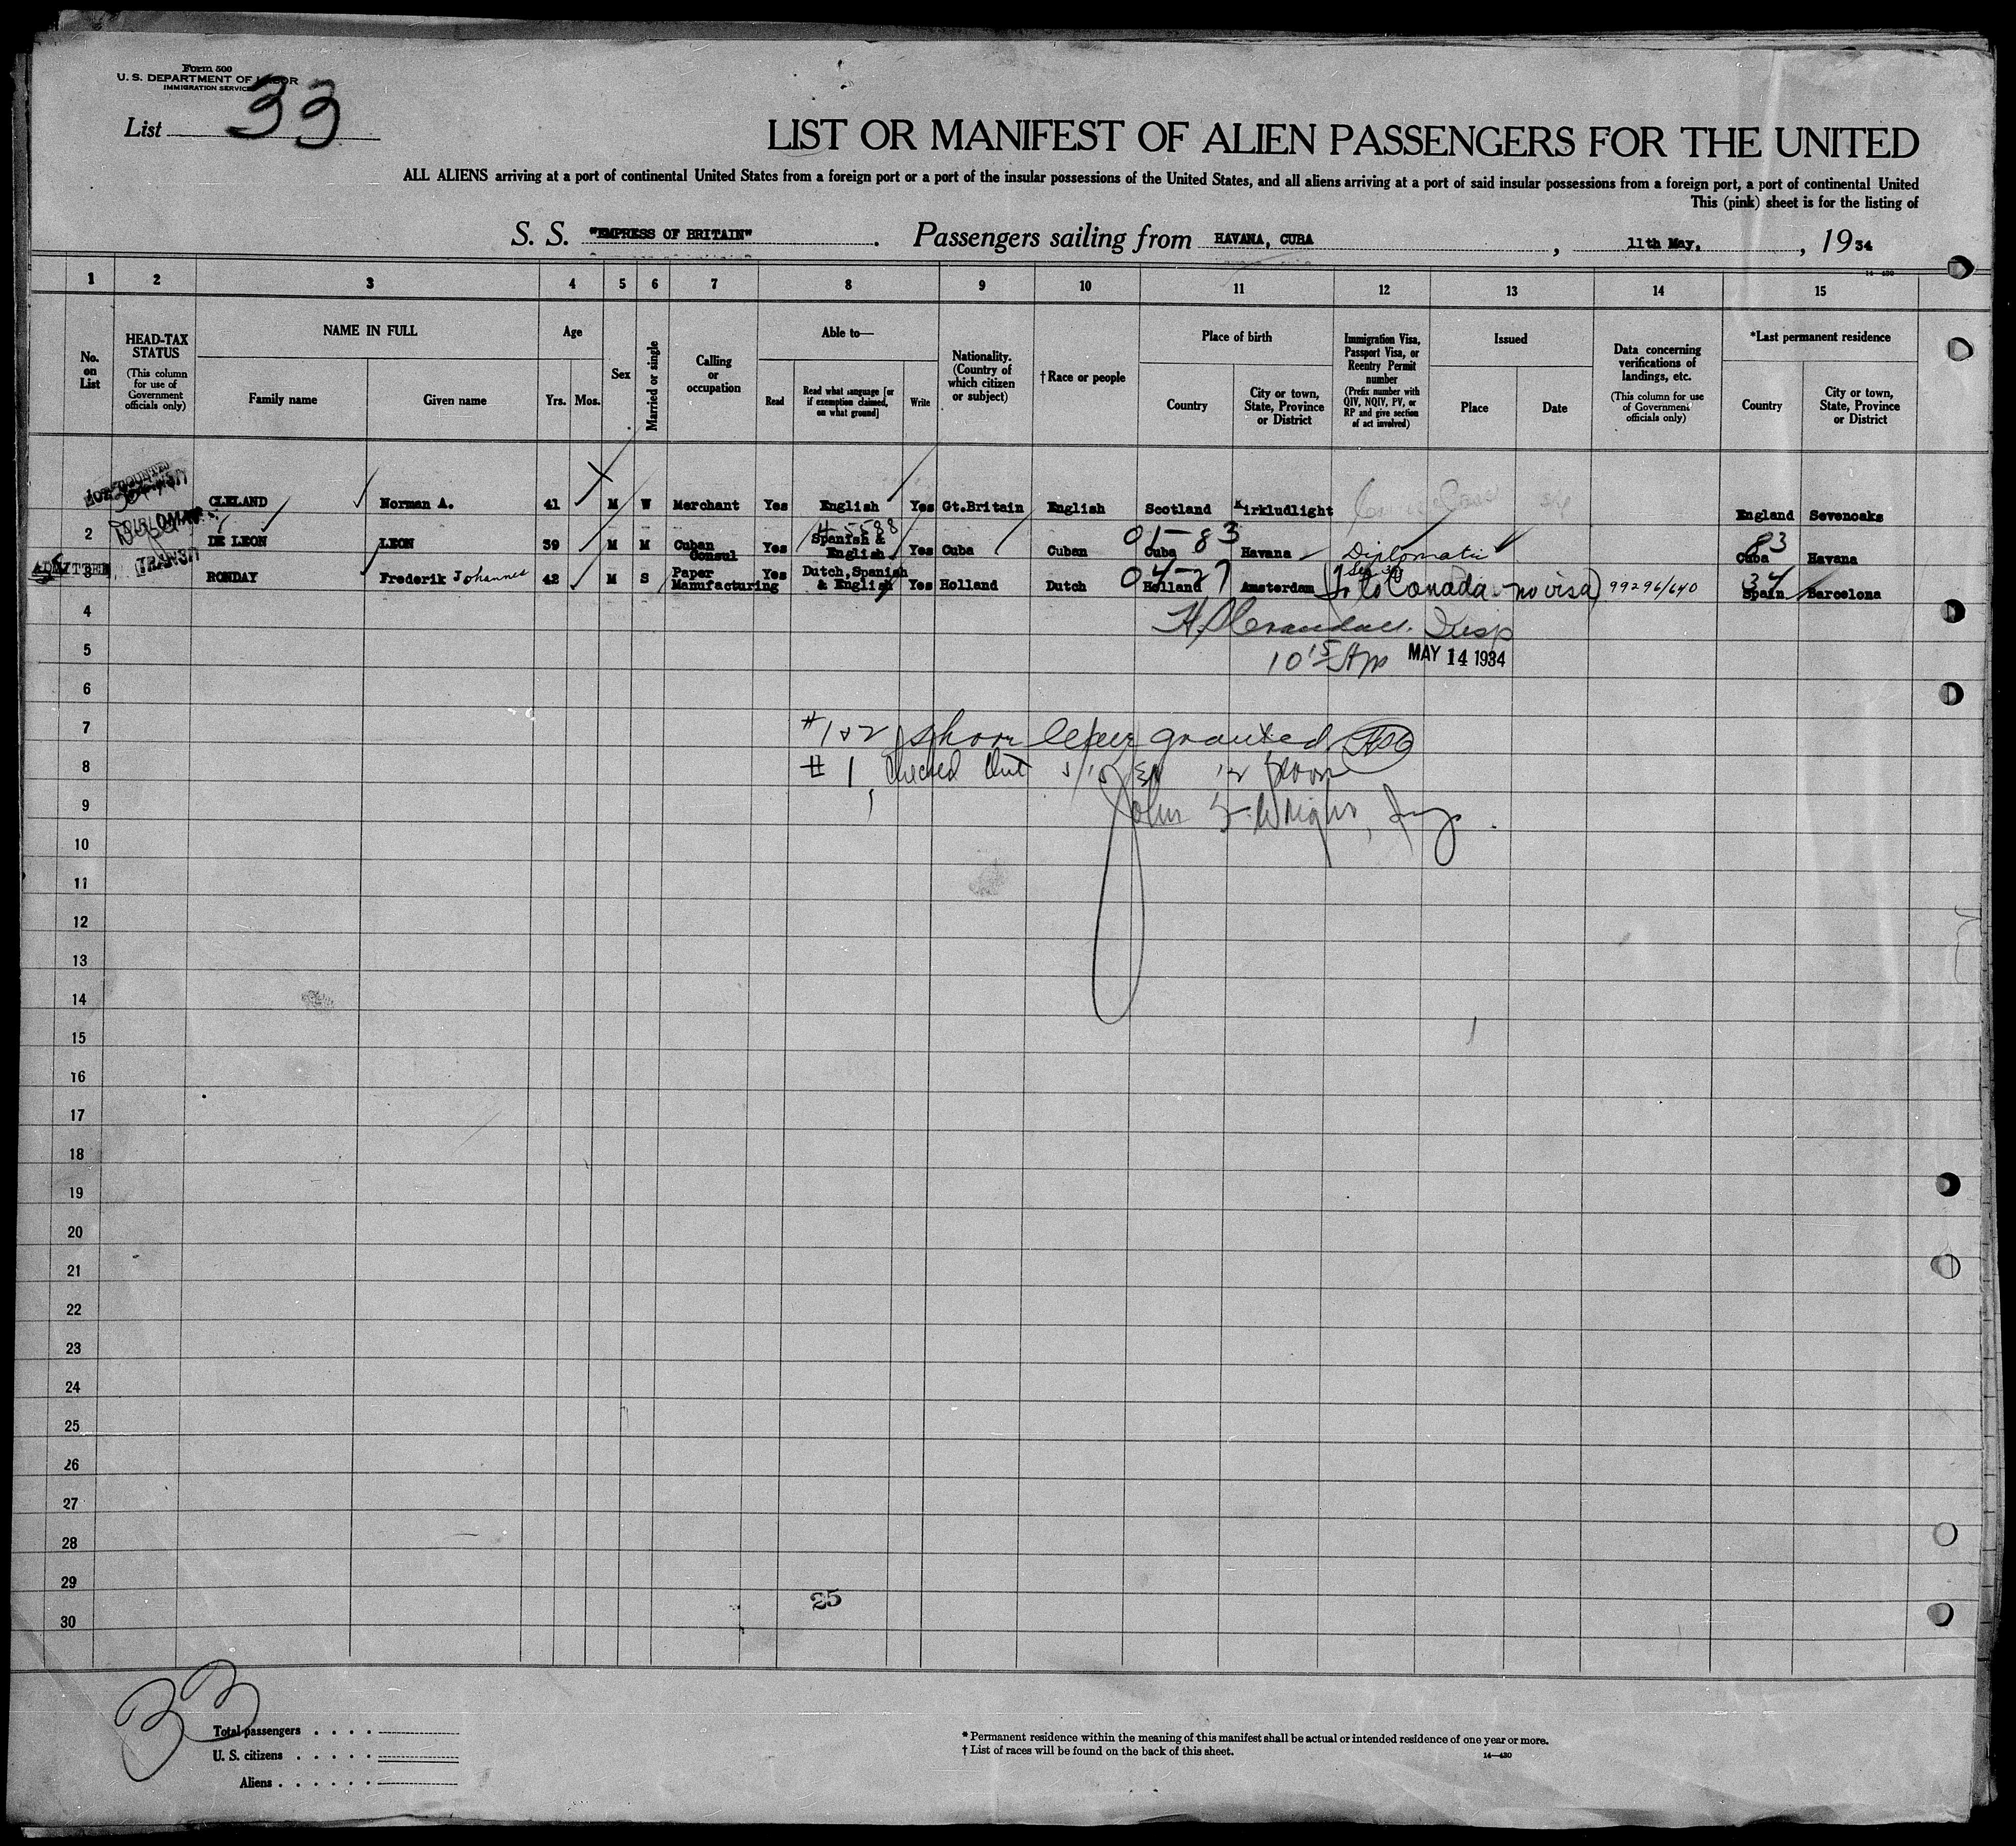 Form 500
U. S. DEPARTMENT OF LABOR
IMMIGRATION SERVICE
List 33
LIST OR MANIFEST OF ALIEN PASSENGERS FOR THE UNITED
ALL ALIENS arriving at a port of continental United States from a foreign port or a port of the insular possessions of the United States, and all aliens arriving at a port of said insular possessions from a foreign port, a port of continental United
This (pink) sheet is for the listing of
S. S. "EMPRESS OF BRITAIN" . Passengers sailing from HAVANA, CUBA , 11th May. , 19 34
14—430
1 2 3 4 5 6 7 8 9 10 11 12 13 14 15
No. on List
HEAD-TAX STATUS
(This column for use of Government officials only)
NAME IN FULL
Family name Given name
Age
Yrs. Mos.
Sex
Married or single
Calling or occupation
Able to—
Read Read what language [or if exemption claimed, on what ground] Write
Nationality. (Country of which citizen or subject)
†Race or people
Place of birth
Country City or town, State, Province or District
Immigration Visa, Passport Visa, or Reentry Permit number
(Prefix number with QIV, NQIV, PV, or RP and give section of act involved)
Issued
Place Date
Data concerning verifications of landings, etc.
(This column for use of Government officials only)
*Last permanent residence
Country City or town, State, Province or District
CLELAND Norman A. 41 M W Merchant Yes English Yes Gt.Britain English Scotland Kirkludlight England Sevenoaks
2 DIPLOMAT DE LEON LEON 39 M M Cuban Consul Yes Spanish & English Yes Cuba Cuban Cuba Havana Diplomatic Cuba Havana
4-5588 01-83 83
3 ADMITTED TRANSIT RONDAY Frederik Johannes 42 M S Paper Manufacturing Yes Dutch, Spanish & English Yes Holland Dutch Holland Amsterdam to Canada - no visa) 99296/640 Spain Barcelona
04-27 34
4
5 10 15 Am MAY 14 1934
6
7 #1&2 shore leave granted
8 #1 Checked Out
9 John
10
11
12
13
14
15
16
17
18
19
20
21
22
23
24
25
26
27
28
29
25
30
33
Total passengers . . . .
U. S. citizens . . . . .
Aliens . . . . . .
* Permanent residence within the meaning of this manifest shall be actual or intended residence of one year or more.
† List of races will be found on the back of this sheet.
14—430